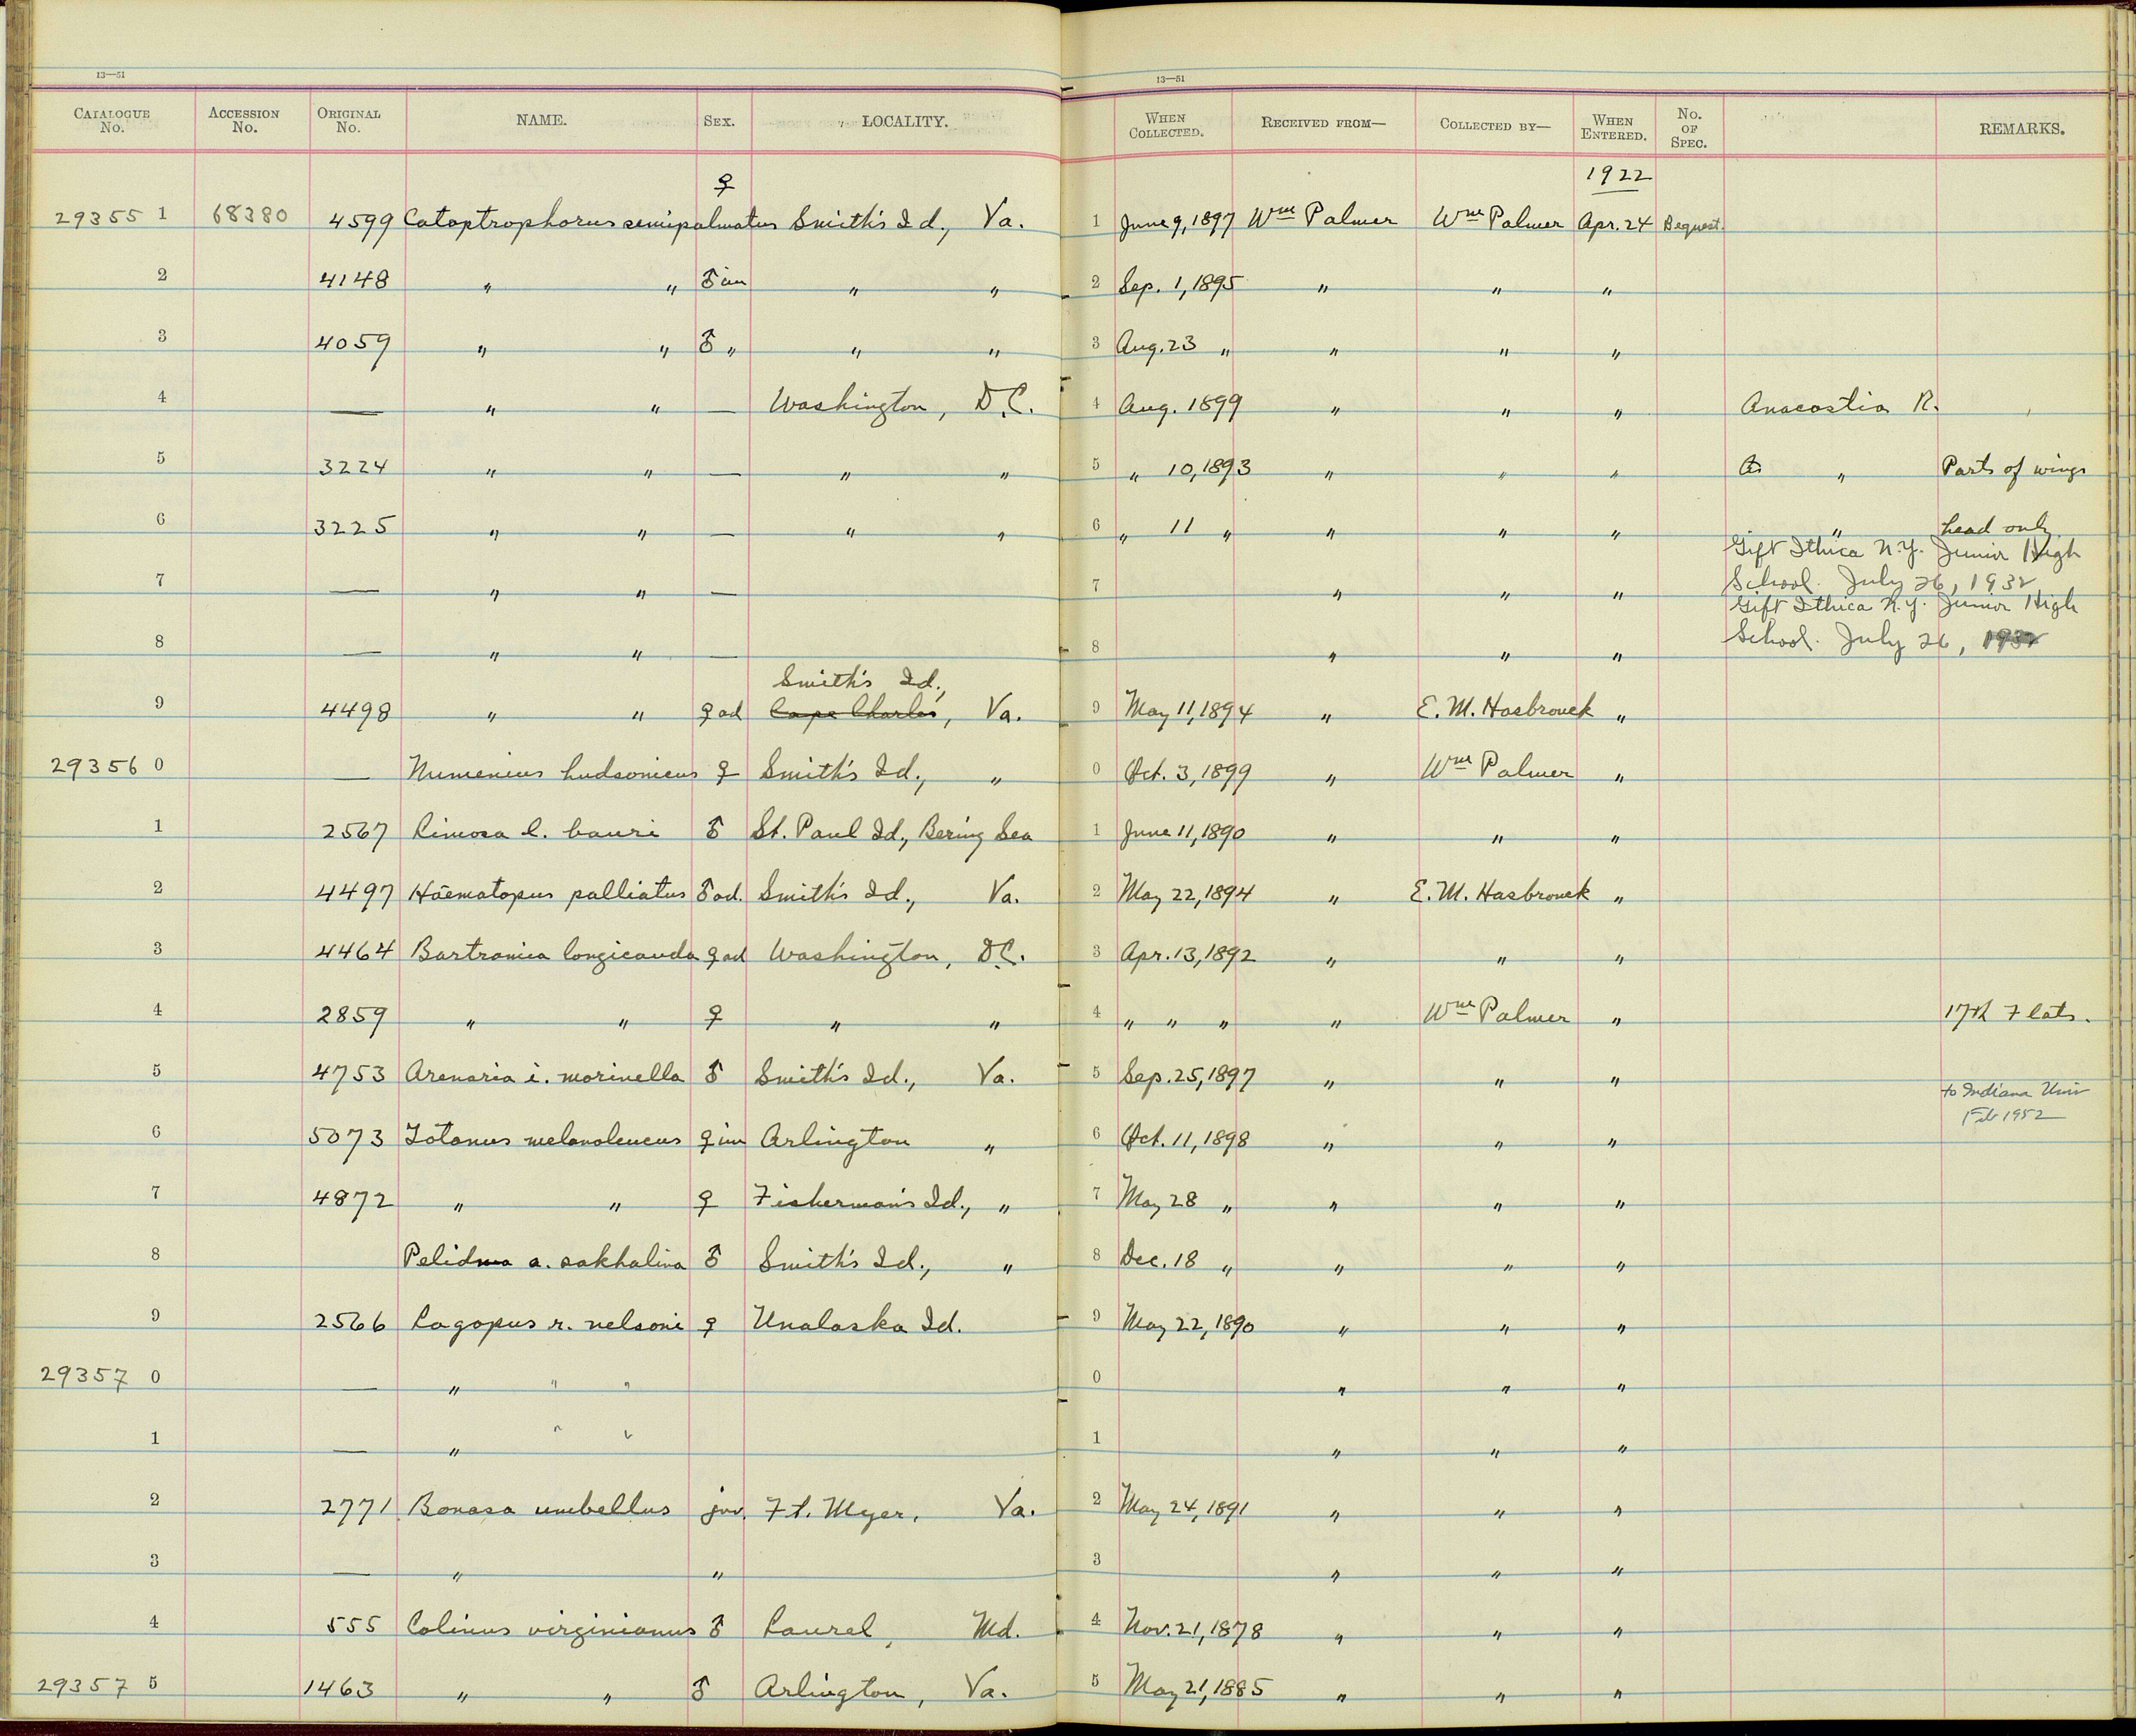 13—51 13—51
CATALOGUE No. ACCESSION No. ORIGINAL No. NAME. SEX. LOCALITY. WHEN COLLECTED. RECEIVED FROM— COLLECTED BY— WHEN ENTERED. No. OF SPEC. REMARKS.
♀ 1922
29355 1 68380 4599 Catoptrophorus semipalmatus Smith's Id., Va. 1 June 9, 1897 Wm Palmer Wm Palmer Apr. 24 Bequest.
2 4148 " " ♂ im " " 2 Sep. 1, 1895 " " "
3 4059 " " ♂ " " " 3 Aug. 23 " " " "
4 — " " — Washington, D.C. 4 Aug. 1899 " " " Anacostia R.
5 3224 " " — " " 5 " 10, 1893 " " " " Parts of wings
6 3225 " " — " " 6 " 11 " " " " " head only
Gift Ithica N.Y. Junior High
7 — " " — 7 " " " School. July 26, 1932
Gift Ithica N.Y. Junior High
8 — " " — 8 " " " School. July 26, 1932
Smith's Id.,
9 4498 " " ♀ ad Cape Charles, Va. 9 May 11, 1894 " E. M. Hasbrouck "
29356 0 — Numenius hudsonicus ♀ Smith's Id., " 0 Oct. 3, 1899 " Wm Palmer "
1 2567 Limosa l. baueri ♂ St. Paul Id., Bering Sea 1 June 11, 1890 " " "
2 4497 Haematopus palliatus ♂ ad. Smith's Id., Va. 2 May 22, 1894 " E. M. Hasbrouck "
3 4464 Bartramia longicauda ♀ ad Washington, D.C. 3 Apr. 13, 1892 " " "
4 2859 " " ♀ " " 4 " " " " Wm Palmer " 17th Flats.
5 4753 Arenaria i. morinella ♂ Smith's Id., Va. 5 Sep. 25, 1897 " " "
to Indiana Univ
Feb 1952
6 5073 Totanus melanoleucus ♀ im Arlington " 6 Oct. 11, 1898 " " "
7 4872 " " ♀ Fisherman's Id., " 7 May 28 " " " "
8 Pelidna a. sakhalina ♂ Smith's Id., " 8 Dec. 18 " " " "
9 2566 Lagopus r. nelsoni ♀ Unalaska Id. 9 May 22, 1890 " " "
29357 0 — " " " 0 " " "
1 — " " " 1 " " "
2 2771 Bonasa umbellus juv. Ft. Myer, Va. 2 May 24, 1891 " " "
3 — " " 3 " " "
4 555 Colinus virginianus ♂ Laurel, Md. 4 Nov. 21, 1878 " " "
29357 5 1463 " " ♂ Arlington, Va. 5 May 21, 1885 " " "